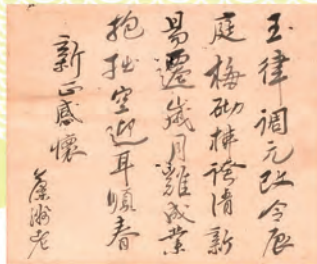 玉律調元改令辰
庭梅砌誇清新
易遷歲月難成業
抱拙空迎耳順春
新正感懷
老